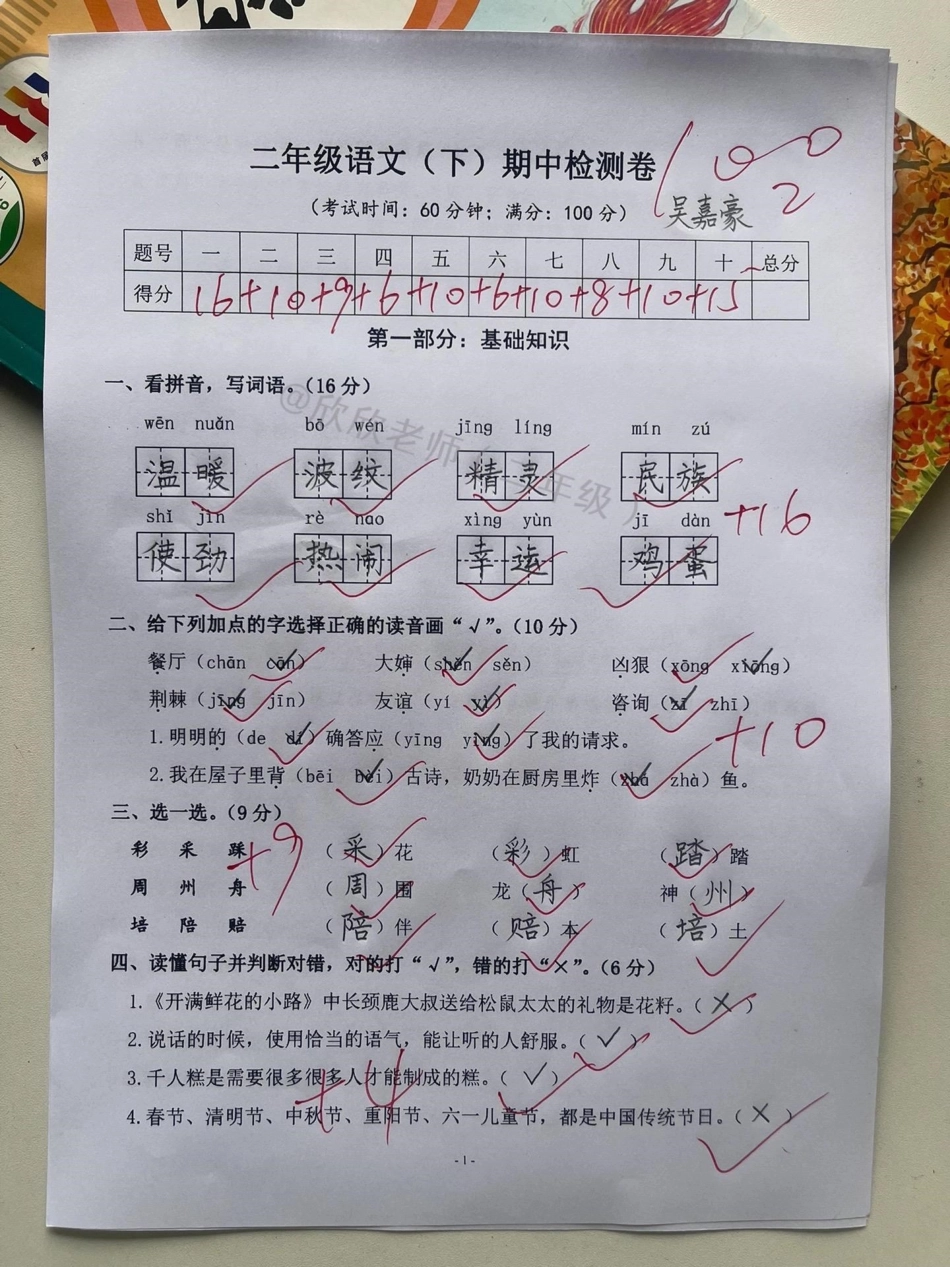 二年级语文（下）期中检测卷
100
2
（考试时间：60分钟；满分：100分）
吴嘉豪
题号 一 二 三 四 五 六 七 八 九 十 总分
得分 16+10+9+6+10+6+10+8+10+15
第一部分：基础知识
一、看拼音，写词语。（16分）
@欣欣老师（
年级）
wēn nuǎn bō wén jīng líng mín zú
温暖 波纹 精灵 民族
+16
shǐ jìn rè nao xìng yùn jī dàn
使劲 热闹 幸运 鸡蛋
二、给下列加点的字选择正确的读音画“√”。（10分）
餐厅（chān cān✓） 大婶（shěn✓ sěn） 凶狠（xōng xiōng✓）
荆棘（jīng✓ jīn） 友谊（yí yì✓） 咨询（zī✓ zhī）
1.明明的（de dí✓）确答应（yīng yìng✓）了我的请求。
+10
2.我在屋子里背（bēi bèi✓）古诗，奶奶在厨房里炸（zhá✓ zhà）鱼。
三、选一选。（9分）
+9
彩 采 踩 （采）花 （彩）虹 （踏）踏
周 州 舟 （周）围 龙（舟） 神（州）
培 陪 赔 （陪）伴 （赔）本 （培）土
四、读懂句子并判断对错，对的打“√”，错的打“×”。（6分）
1.《开满鲜花的小路》中长颈鹿大叔送给松鼠太太的礼物是花籽。（×）
2.说话的时候，使用恰当的语气，能让听的人舒服。（✓）
3.千人糕是需要很多很多人才能制成的糕。（✓）
+4
4.春节、清明节、中秋节、重阳节、六一儿童节，都是中国传统节日。（×）
-1-